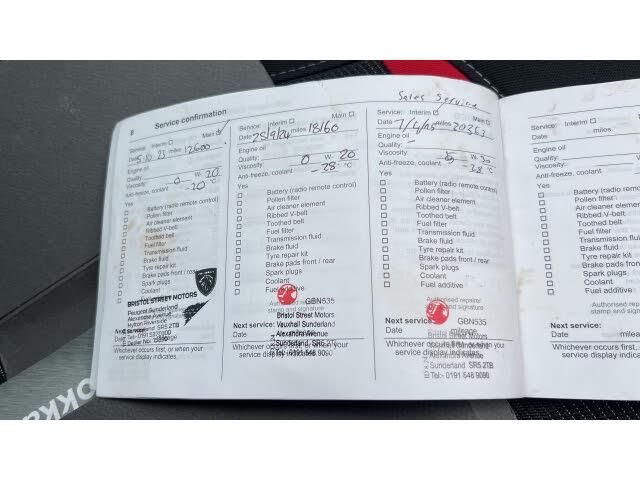 8 Service confirmation
Service: Interim ☐ Main
Date 5.10.23 miles 12600
Engine oil
Quality:
Viscosity: 0 W- 20
Anti-freeze, coolant -20 °C
Yes
☐ Battery (radio remote control)
☐ Pollen filter
☐ Air cleaner element
☐ Ribbed V-belt
☐ Toothed belt
☐ Fuel filter
☐ Transmission fluid
☐ Brake fluid
☐ Tyre repair kit
☐ Brake pads front / rear
☐ Spark plugs
☐ Coolant
☐ Fuel
BRISTOL STREET MOTORS
Peugeot Sunderland
Alexandra Avenue
Hylton Riverside
SR5 2TB
Date
Whichever occurs first, or when your
service display indicates.
Service: Interim ☐ Main ☐
Date 25/9/24 miles 18160
Engine oil
Quality:
Viscosity: 0 W- 20
Anti-freeze, coolant -28 °C
Yes
☐ Battery (radio remote control)
☐ Pollen filter
☐ Air cleaner element
☐ Ribbed V-belt
☐ Toothed belt
☐ Fuel filter
☐ Transmission fluid
☐ Brake fluid
☐ Tyre repair kit
☐ Brake pads front / rear
☐ Spark plugs
☐ Coolant
☐ Fuel additive
GBN535
Bristol Street Motors
Next service: Vauxhall Sunderland
Date Alexandra Avenue
Sunderland SR5 2TB
Whichever occurs first, or when your
service display indicates.
Tel:- 0191 548 9090
Sales Service
Service: Interim ☐ Main ☐
Date 7/4/25 miles 20363
Engine oil
Quality: -
Viscosity: W- 30
Anti-freeze, coolant -38 °C
Yes
☐ Battery (radio remote control)
☐ Pollen filter
☐ Air cleaner element
☐ Ribbed V-belt
☐ Toothed belt
☐ Fuel filter
☐ Transmission fluid
☐ Brake fluid
☐ Tyre repair kit
☐ Brake pads front / rear
☐ Spark plugs
☐ Coolant
☐ Fuel additive
Authorised repairer
stamp and signature
GBN535
Next service:
Bristol Street Motors
Date mileage
Sunderland
Alexandra Avenue
Sunderland SR5 2TB
Tel:- 0191 548 9090
Whichever occurs first, or when your
service display indicates.
Service: Interim ☐
Date miles
Engine oil
Quality:
Viscosity:
Anti-freeze, coolant
Yes
☐ Battery (radio remote
☐ Pollen filter
☐ Air cleaner element
☐ Ribbed V-belt
☐ Toothed belt
☐ Fuel filter
☐ Transmission fluid
☐ Brake fluid
☐ Tyre repair kit
☐ Brake pads front / rear
☐ Spark plugs
☐ Coolant
☐ Fuel additive
Authorised
stamp and
Next service:
Date
Whichever occurs first,
service display indicates.
OKKA